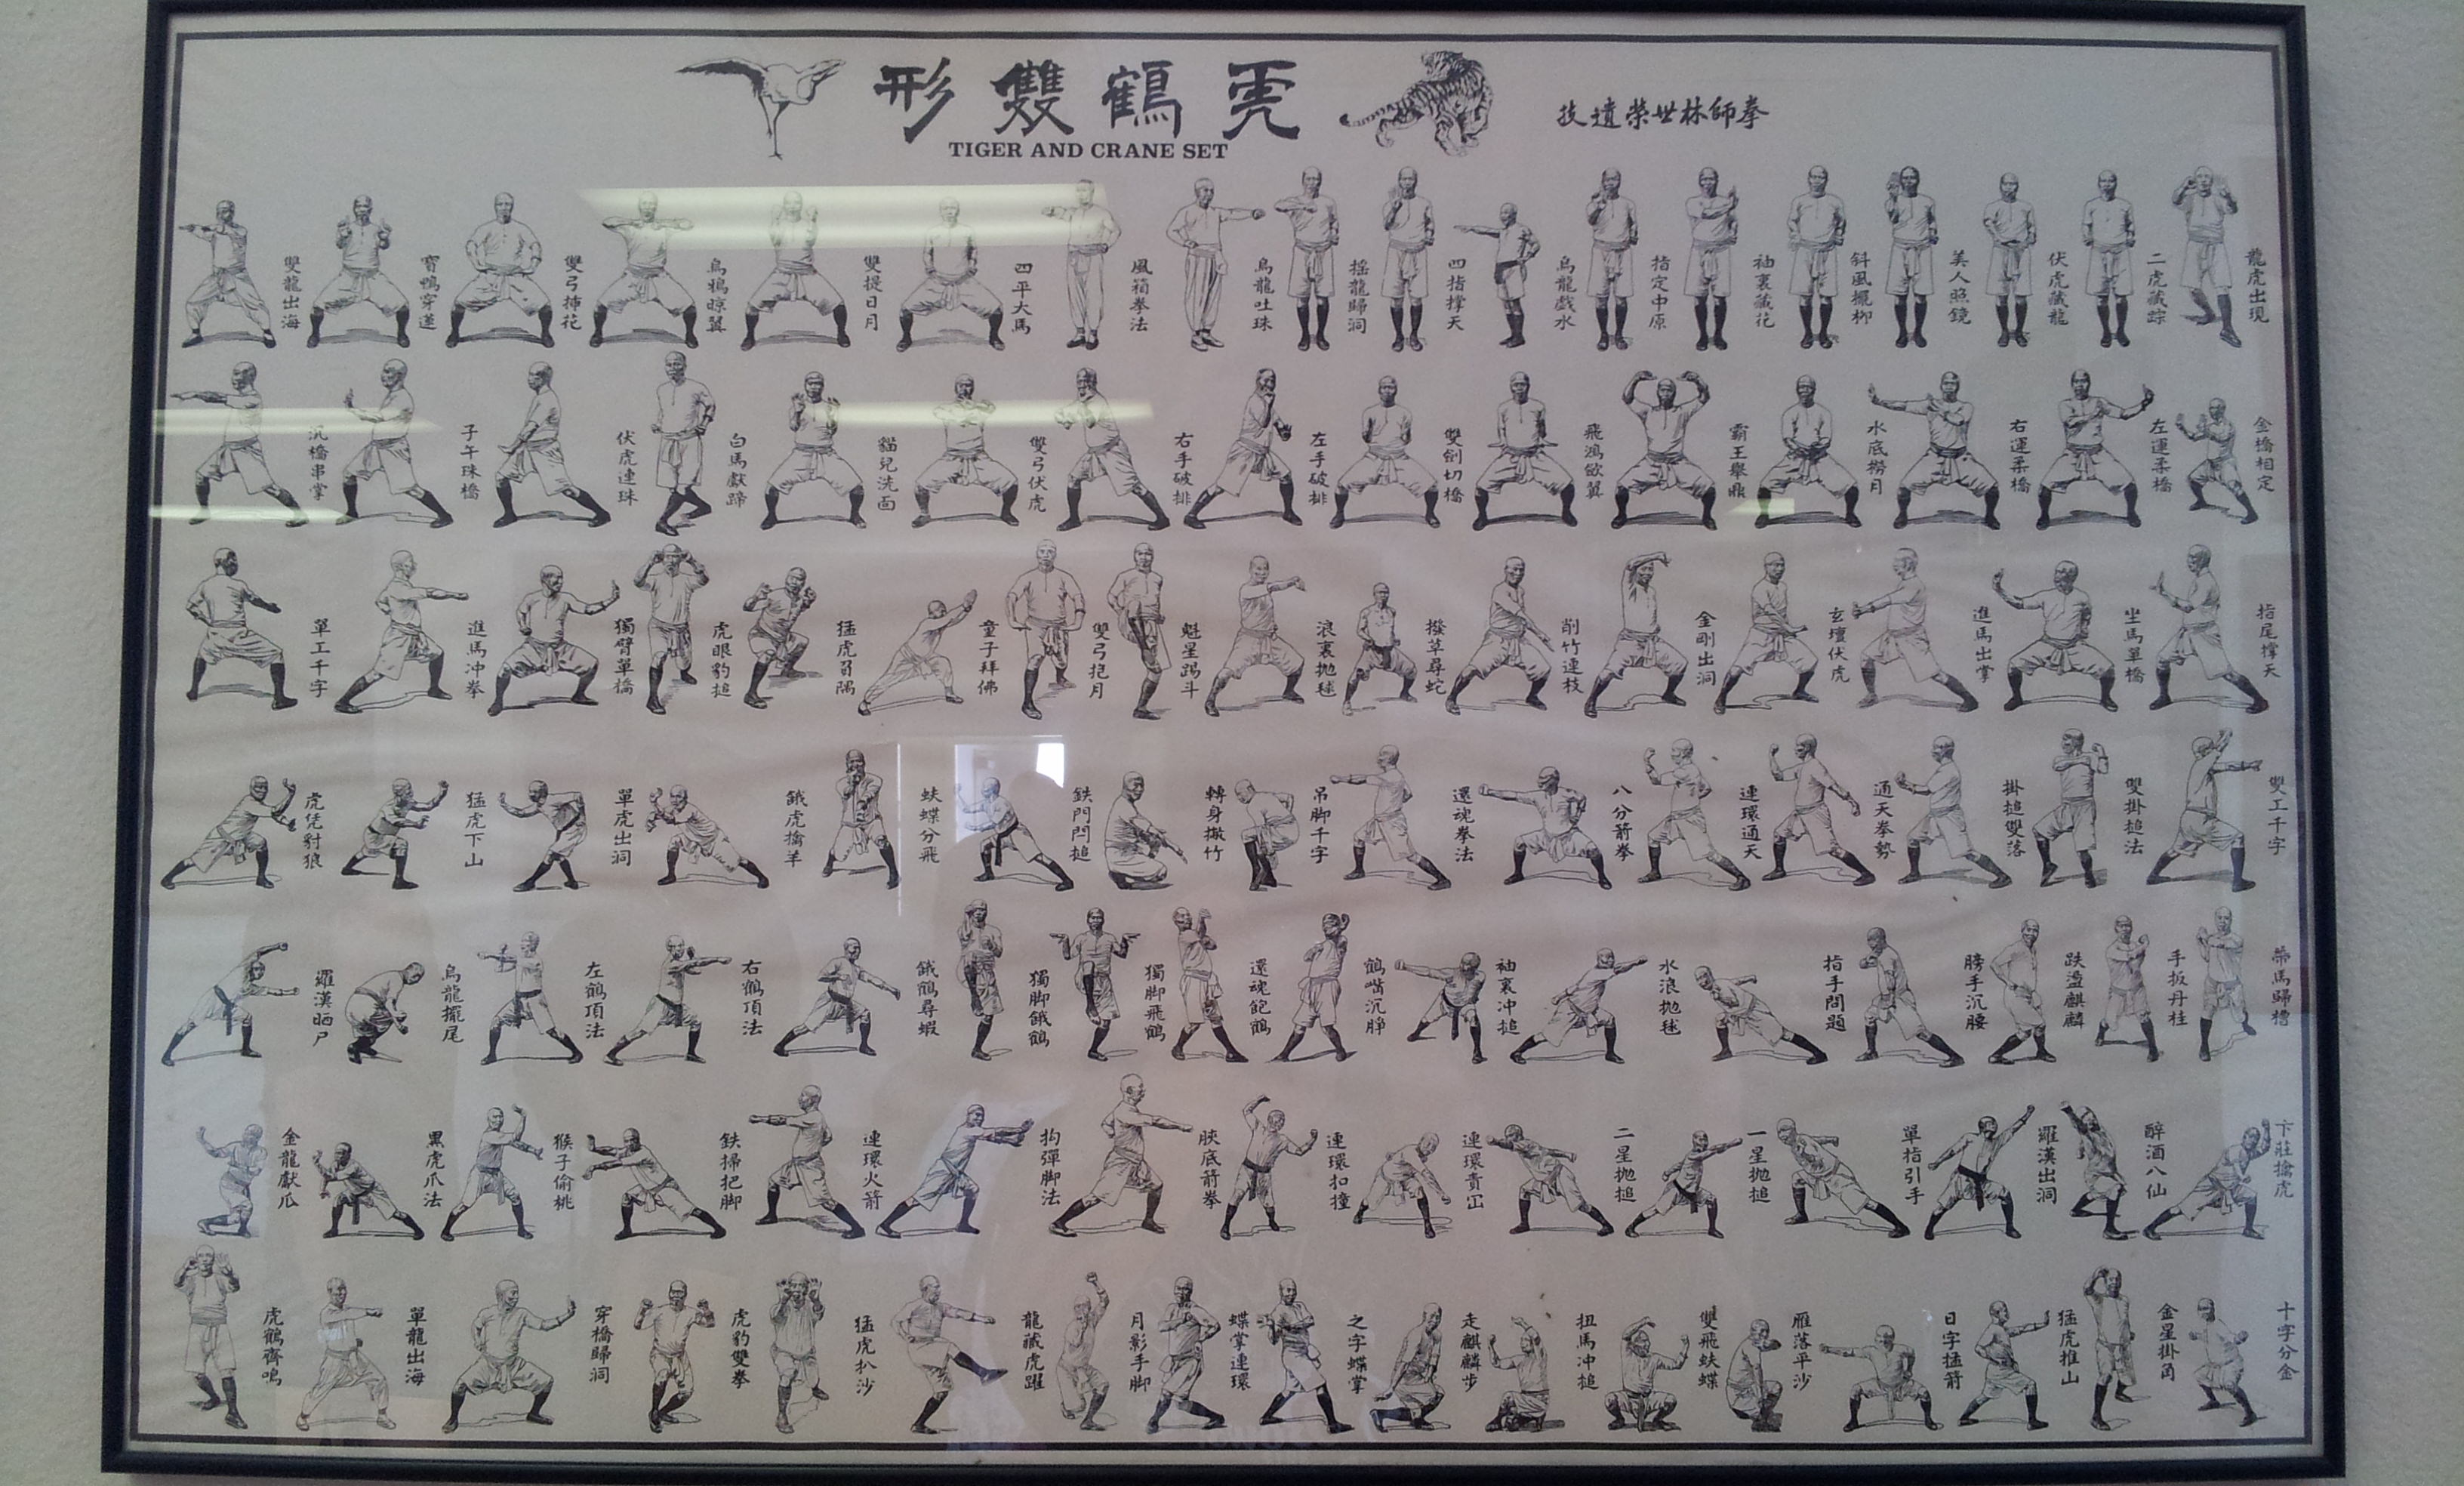 拳師林世榮遺技
虎鶴雙形
TIGER AND CRANE SET
龍虎出現
二虎藏踪
伏虎藏龍
美人照鏡
斜風擺柳
袖裏藏花
指定中原
烏龍戲水
四指撐天
搖龍歸洞
烏龍吐珠
風箱拳法
四平大馬
雙提日月
烏鴉晾翼
雙弓揷花
寶鴨穿蓮
雙龍出海
金橋相定
左運柔橋
右運柔橋
水底撈月
霸王舉鼎
飛鴻歛翼
雙劍切橋
左手破排
右手破排
雙弓伏虎
貓兒洗面
白馬獻蹄
伏虎連珠
子午珠橋
沉橋串掌
指尾撐天
坐馬單橋
進馬出掌
玄壇伏虎
金剛出洞
削竹連枝
撥草尋蛇
浪裏拋毬
魁星踢斗
雙弓抱月
童子拜佛
猛虎負隅
虎眼豹搥
獨臂單橋
進馬冲拳
單工千字
雙工千字
雙掛搥法
掛搥雙落
通天拳勢
連環通天
八分箭拳
還魂拳法
吊脚千字
轉身撇竹
鉄門閂搥
蚨蝶分飛
餓虎擒羊
單虎出洞
猛虎下山
虎凭豺狼
策馬歸槽
手扳丹桂
跌盪麒麟
膀手沉腰
指手問題
水浪拋毬
袖裏冲搥
鶴嘴沉睜
還魂飽鶴
獨脚飛鶴
獨脚餓鶴
餓鶴尋蝦
右鶴頂法
左鶴頂法
烏龍擺尾
羅漢晒尸
卞莊擒虎
醉酒八仙
羅漢出洞
單指引手
一星拋搥
二星拋搥
連環扣撞
脥底箭拳
拘彈脚法
連環火箭
鉄掃把脚
猴子偷桃
黑虎爪法
金龍獻爪
十字分金
金星掛角
猛虎推山
日字猛箭
雁落平沙
雙飛蚨蝶
扭馬冲搥
走麒麟步
之字蝶掌
蝶掌連環
月影手脚
龍藏虎躍
猛虎扒沙
虎豹雙拳
穿橋歸洞
單龍出海
虎鶴齊鳴